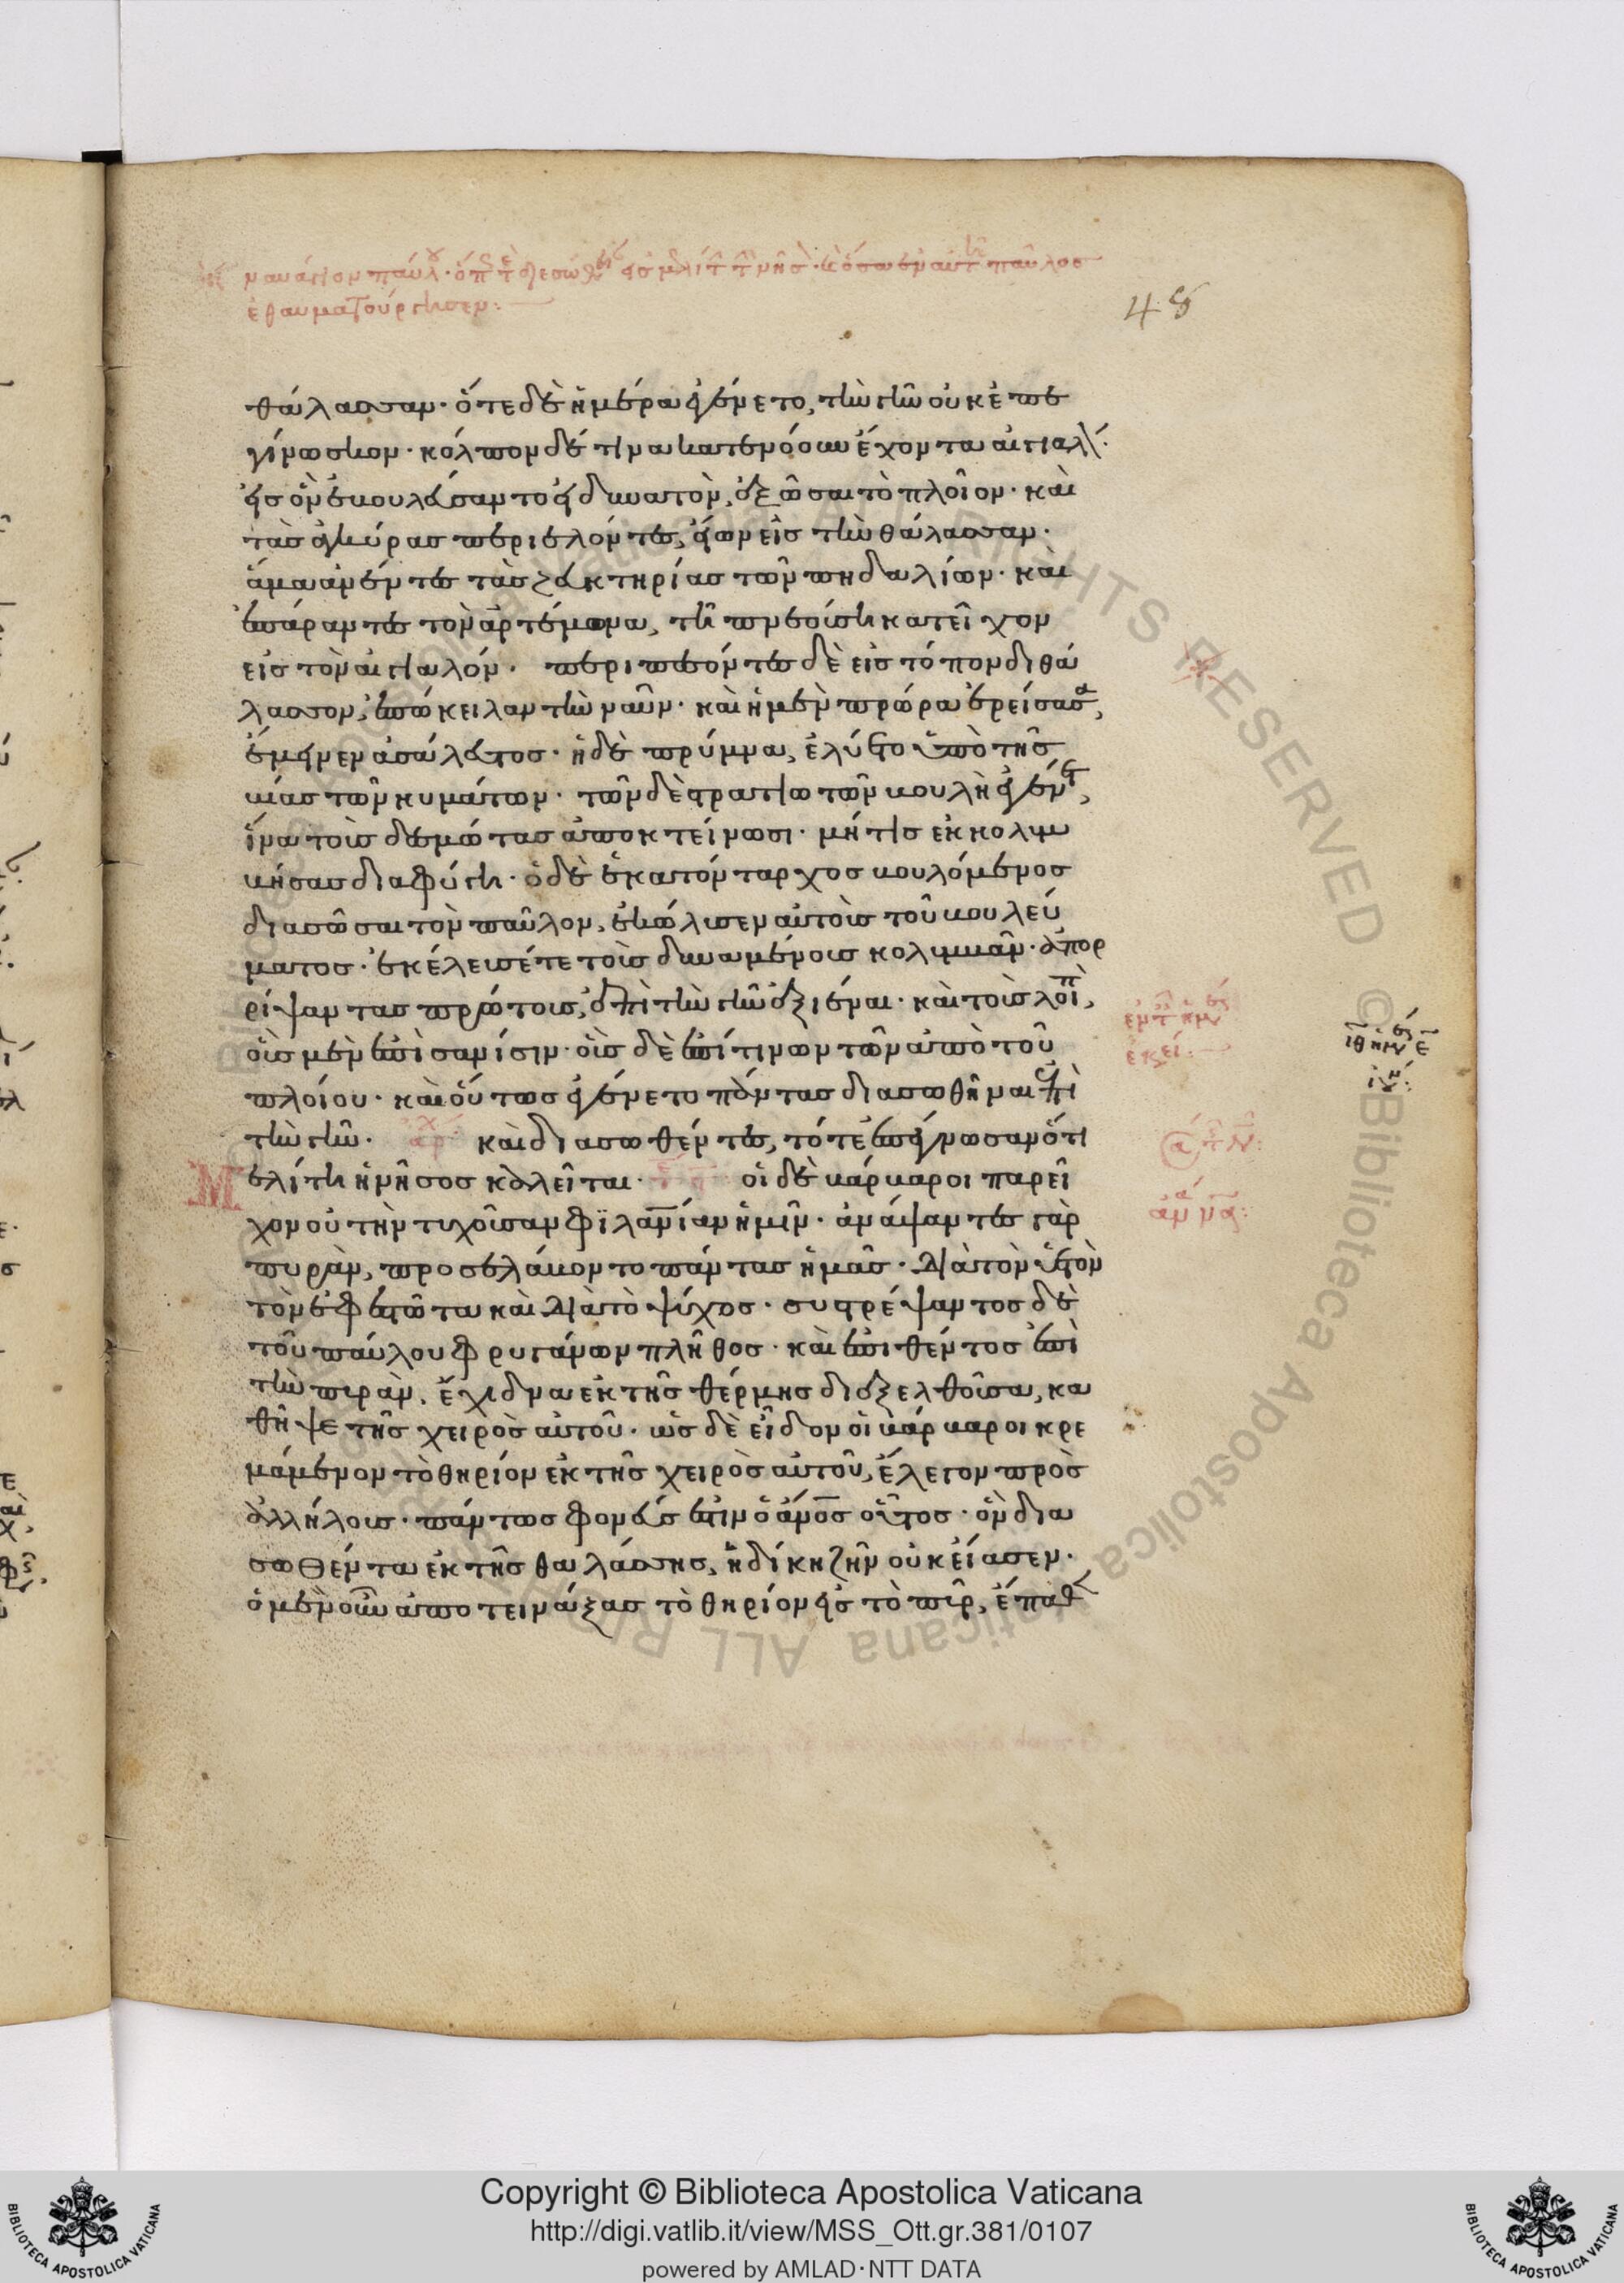 ναυάγιον παύλου
ἐθαυματούργησεν:
48
θάλασσαν· ὅτε δὲ ἡμέρα ἐγένετο, τὴν γῆν οὐκ ἐπε
γίνωσκον· κόλπον δέ τινα κατενόουν ἔχοντα αἰγιαλ
εἰς ὃν ἐβουλεύσαντο εἰ δυνατὸν, ἐξῶσαι τὸ πλοῖον· καὶ
τὰς ἀγκύρας περιελόντες, εἴων εἰς τὴν θάλασσαν·
ἅμα ἀνέντες τὰς ζευκτηρίας τῶν πηδαλίων· καὶ
ἐπάραντες τὸν ἀρτέμωνα, τῆ πνεούση κατεῖχον
εἰς τὸν αἰγιαλόν· περιπεσόντες δὲ εἰς τόπον διθά
λασσον, ἐπώκειλαν τὴν ναῦν· καὶ ἡ μὲν πρώρα ἐρείσασα,
ἔμεινεν ἀσάλευτος· ἡ δὲ πρύμνα, ἐλύετο ὑπὸ τῆς
βίας τῶν κυμάτων· τῶν δὲ στρατιωτῶν βουλὴ ἐγένετ,
ἵνα τοὺς δεσμώτας ἀποκτείνωσι· μή τις ἐκκολυμ
βήσας διαφύγη· ὁ δὲ ἑκατόνταρχος βουλόμενος
διασῶσαι τὸν παῦλον, ἐκώλυσεν αὐτοὺς τοῦ βουλεύ
ματος· ἐκέλευσέ τε τοὺς δυναμένους κολυμβᾶν· ἀπορ
ρίψαντας πρώτους, ἐπὶ τὴν γῆν ἐξιέναι· καὶ τοὺς λοιπ,
οὓς μὲν ἐπὶ σανίσιν· οὓς δὲ ἐπί τινων τῶν ἀπὸ τοῦ
πλοίου· καὶ οὕτως ἐγένετο πάντας διασωθῆναι ἐπὶ
τὴν γῆν· ἀρχ καὶ διασωθέντες, τότε ἐπέγνωσαν ὅτι
Μελίτη ἡ νῆσος καλεῖται· οἱ δὲ βάρβαροι παρεῖ
χον οὐ τὴν τυχοῦσαν φιλανίαν ἡμῖν· ἀνάψαντες γὰρ
πυρὰν, προσελάβοντο πάντας ἡμᾶς· διὰ τὸν ὑετὸν
τὸν ἐφεστῶτα καὶ διὰ τὸ ψύχος· συστρέψαντος δὲ
τοῦ παύλου φρυγάνων πλῆθος· καὶ ἐπιθέντος ἐπὶ
τὴν πυρὰν, ἔχιδνα ἐκ τῆς θέρμης διεξελθοῦσα, κα
θῆψε τῆς χειρὸς αὐτοῦ· ὡς δὲ εἶδον οἱ βάρβαροι κρε
μάμενον τὸ θηρίον ἐκ τῆς χειρὸς αὐτοῦ, ἔλεγον πρὸς
ἀλλήλους· πάντως φονεύς ἐστιν ὁ ἄνος οὗτος· ὃν δια
σωθέντα ἐκ τῆς θαλάσσης, ἡ δίκη ζῆν οὐκ εἴασεν·
ὁ μὲν οὖν ἀποτειναξας τὸ θηρίον εἰς τὸ πῦρ, ἔπαθ
Copyright © Biblioteca Apostolica Vaticana
http://digi.vatlib.it/view/MSS_Ott.gr.381/0107
powered by AMLAD·NTT DATA